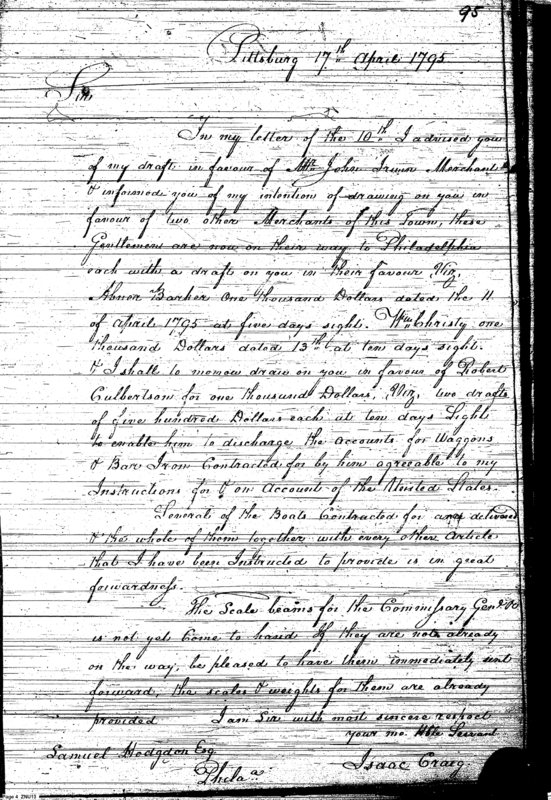 95
Pittsburg 17th April 1795
Sir
In my letter of the 10th I advised you
of my draft in favour of Mr John Irwin Merchant
& informed you of my intention of drawing on you in
favour of two other Merchants of this Town, these
Gentlemens are now on their way to Philadelphia
each with a draft on you in their favour Viz,
Abner Barker One thousand Dollars dated the 11
of April 1795 at five days sight. Wm Christy one
thousand Dollars dated 13th at ten days sight.
& I shall to morrow draw on you in favour of Robert
Culbertson for one thousand Dollars, Viz, two drafts
of five hundred Dollars each at ten days Sight
to enable him to discharge the accounts for Waggons
& Bar Iron Contracted for by him agreeable to my
Instructions for & on Account of the United States.
Several of the Boats Contracted for are delivered
& the whole of them together with every other Article
that I have been Instructed to provide is in great
forwardness.
The Scale beams for the Commissary Genl &
is not yet Come to hand If they are not already
on the way, be pleased to have them immediately sent
forward, the scales & weights for them are already
provided I am Sir with most sincere respect
your mo. Hble Servant
Samuel Hodgdon Esq
Isaac Craig
Phila
Page 4 ZNU13